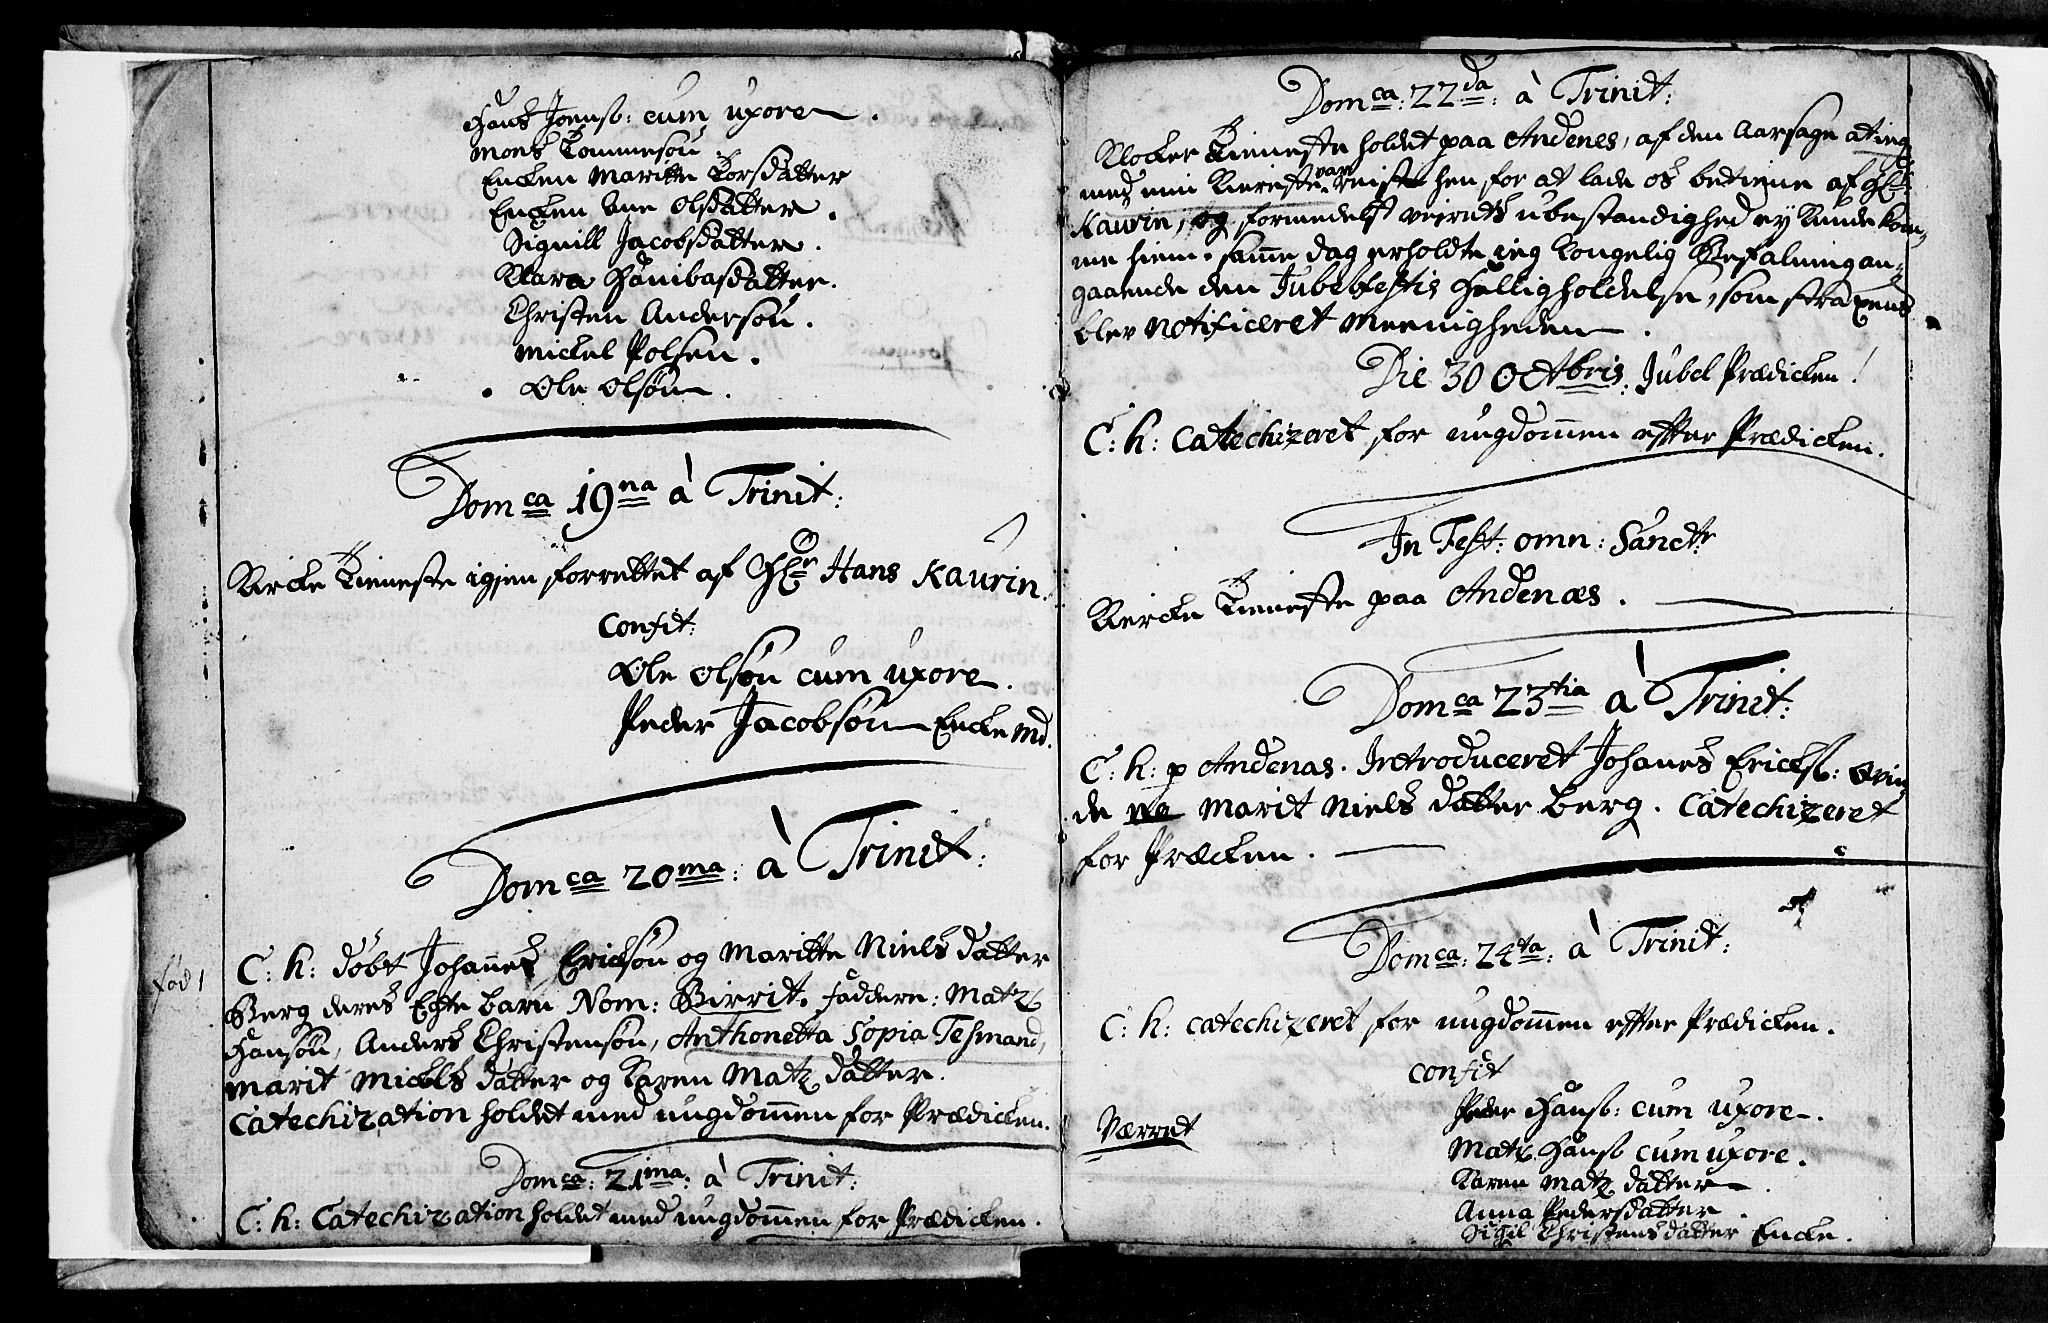 Hans Joensø: cum uxore.
Mons Tommesøn
Encken Maritte Torsdatter
Encken Ane Olsdatter.
Signill Jacobsdatter.
Klara Hanibasdatter.
Christen Andersøn.
Mickel Polsen.
Ole Olsøn.
Domca 19na à Trinit:
Kircke Tieneste igjen forrettet af Hr Hans Kaurin.
Confit:
Ole Olsøn cum uxore.
Peder Jacobsøn Encke Md.
Domca 20ma: à Trinit:
C: h: døbt Johannes Ericksøn og Maritte Niels datter
fød 1
Berg deres Egte barn Nom: Birrit. faddere: Matz
Hansøn, Anders Christensøn, Anthonetta Sopia Tesmand,
Marit Mickels datter og Karen Matz datter.
Catechization holdet med ungdommen for Prædicken.
Domca: 21ma: à Trinit:
C: h: Catechization holdet med ungdommen for Prædicken.
Domca: 22da: à Trinit:
Klocker Tieneste holdet paa Andenes, af den Aarsage at ieg
med min Kiereste var reist hen for at lade os betiene af Hr
Kaurin, og formedelst veirets ubestandighed ey kunde kom,
me hiem. samme dag erholdte ieg Kongelig Befalning an,
gaaende den Jubelfestis Helligholdelse, som straxens
blev notificeret Meenigheden.
Die 30 Octobris. Jubel Prædicken!
C: h: Catechizeret for ungdommen effter Prædicken.
In Fest: omn: Sanct:
Kircke Tieneste paa Andenæs.
Domca 23tia à Trinit:
C: h: p Andenas. Introduceret Johanes Ericks: Qvin,
de Marit Niels datter Berg. Catechizeret
for Præcken.
Domca: 24ta: à Trinit:
C: h: catechizeret for ungdommen effter Prædicken.
Confit
Peder Hansø: cum uxore.
Værret
Matz Hansø cum uxore.
Karen Matz datter.
Anna Pedersdatter.
Sigil Christensdatter Encke.